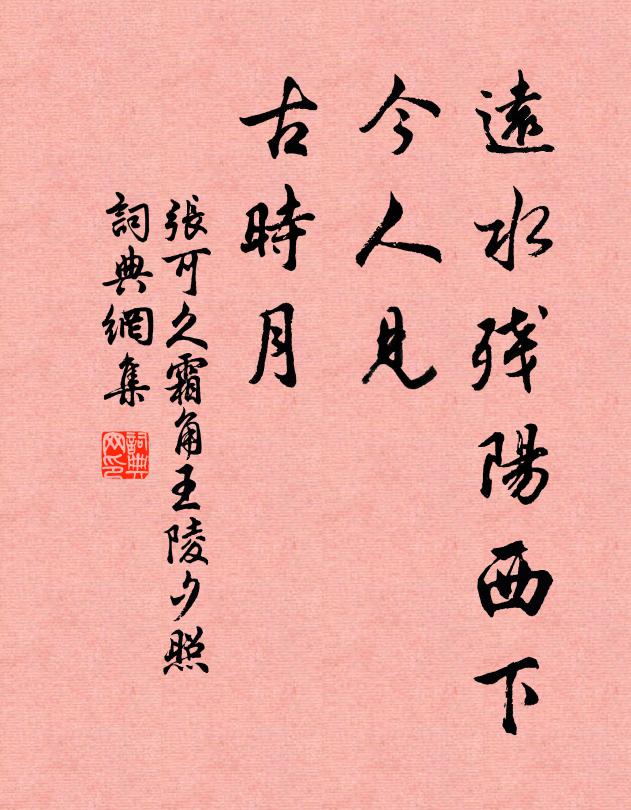 遠水残陽西下
今人見
古時月
張可久霜角王陵夕照
詞典網集
詞典网印